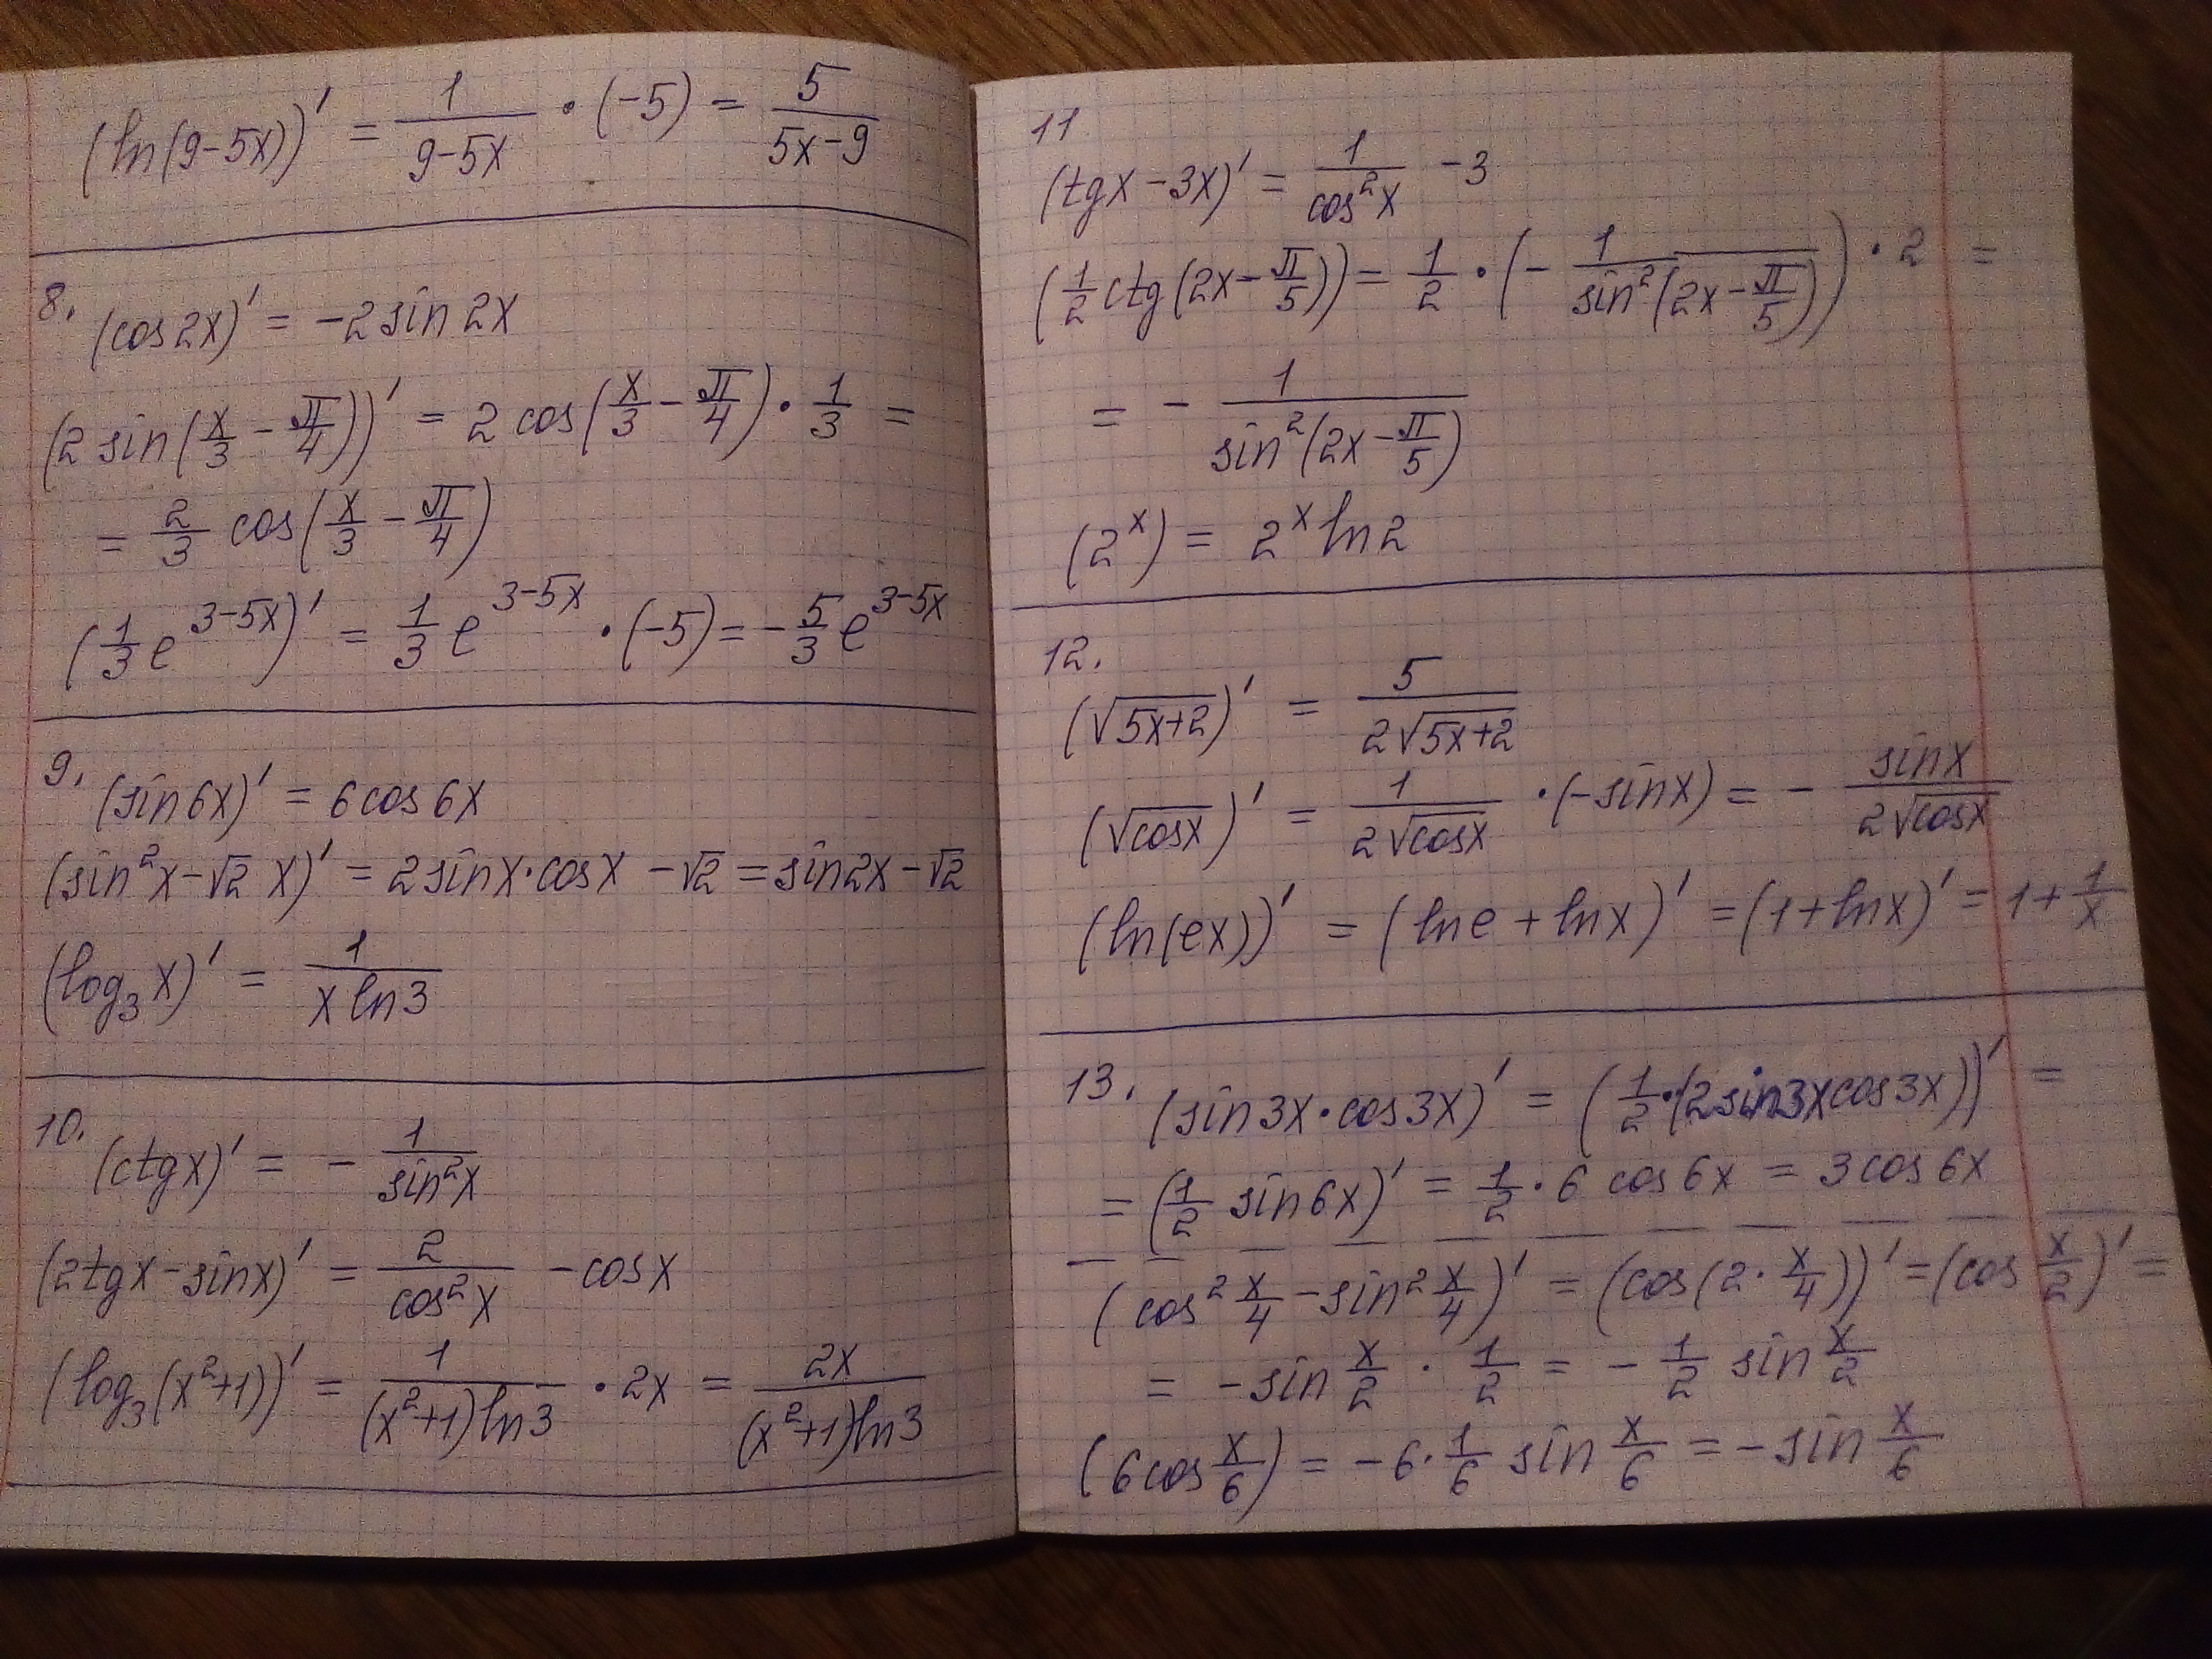 (ln(9-5x))' = 1/(9-5x) · (-5) = 5/(5x-9)
8. (cos2x)' = -2sin2x
(2sin(x/3 - π/4))' = 2cos(x/3 - π/4) · 1/3 =
= 2/3 cos(x/3 - π/4)
(1/3 e^(3-5x))' = 1/3 e^(3-5x) · (-5) = -5/3 e^(3-5x)
9. (sin6x)' = 6cos6x
(sin²x - √2 x)' = 2sinx·cosx - √2 = sin2x - √2
(log₃x)' = 1/(x ln3)
10. (ctgx)' = - 1/sin²x
(2tgx - sinx)' = 2/cos²x - cosx
(log₃(x²+1))' = 1/((x²+1)ln3) · 2x = 2x/((x²+1)ln3)
11
(tgx - 3x)' = 1/cos²x - 3
(1/2 ctg(2x - π/5)) = 1/2 · (- 1/sin²(2x - π/5)) · 2 =
= - 1/sin²(2x - π/5)
(2^x) = 2^x ln2
12.
(√(5x+2))' = 5/(2√(5x+2))
(√cosx)' = 1/(2√cosx) · (-sinx) = - sinx/(2√cosx)
(ln(ex))' = (lne + lnx)' = (1+lnx)' = 1 + 1/x
13. (sin3x·cos3x)' = (1/2·(2sin3xcos3x))' =
= (1/2 sin6x)' = 1/2·6 cos6x = 3cos6x
(cos² x/4 - sin² x/4)' = (cos(2·x/4))' = (cos x/2)' =
= -sin x/2 · 1/2 = - 1/2 sin x/2
(6cos x/6) = -6·1/6 sin x/6 = -sin x/6